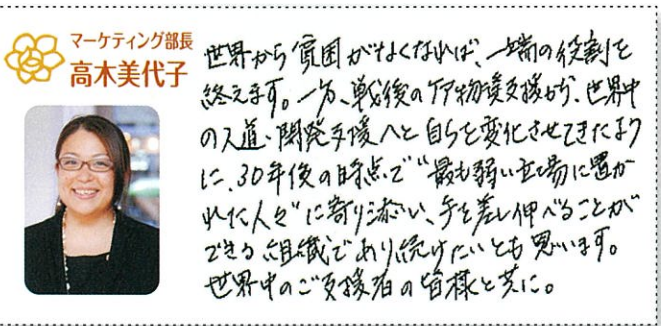 マーケティング部長
高木美代子
世界から貧困がなくなれば、一端の役割を
終えます。一方、戦後のケア物資支援から、世界中
の人道・開発支援へと自らを変化させてきたよう
に、30年後の時点で“最も弱い立場に置か
れた人々”に寄り添い、手を差し伸べることが
できる組織であり続けたいとも思います。
世界中のご支援者の皆様と共に。